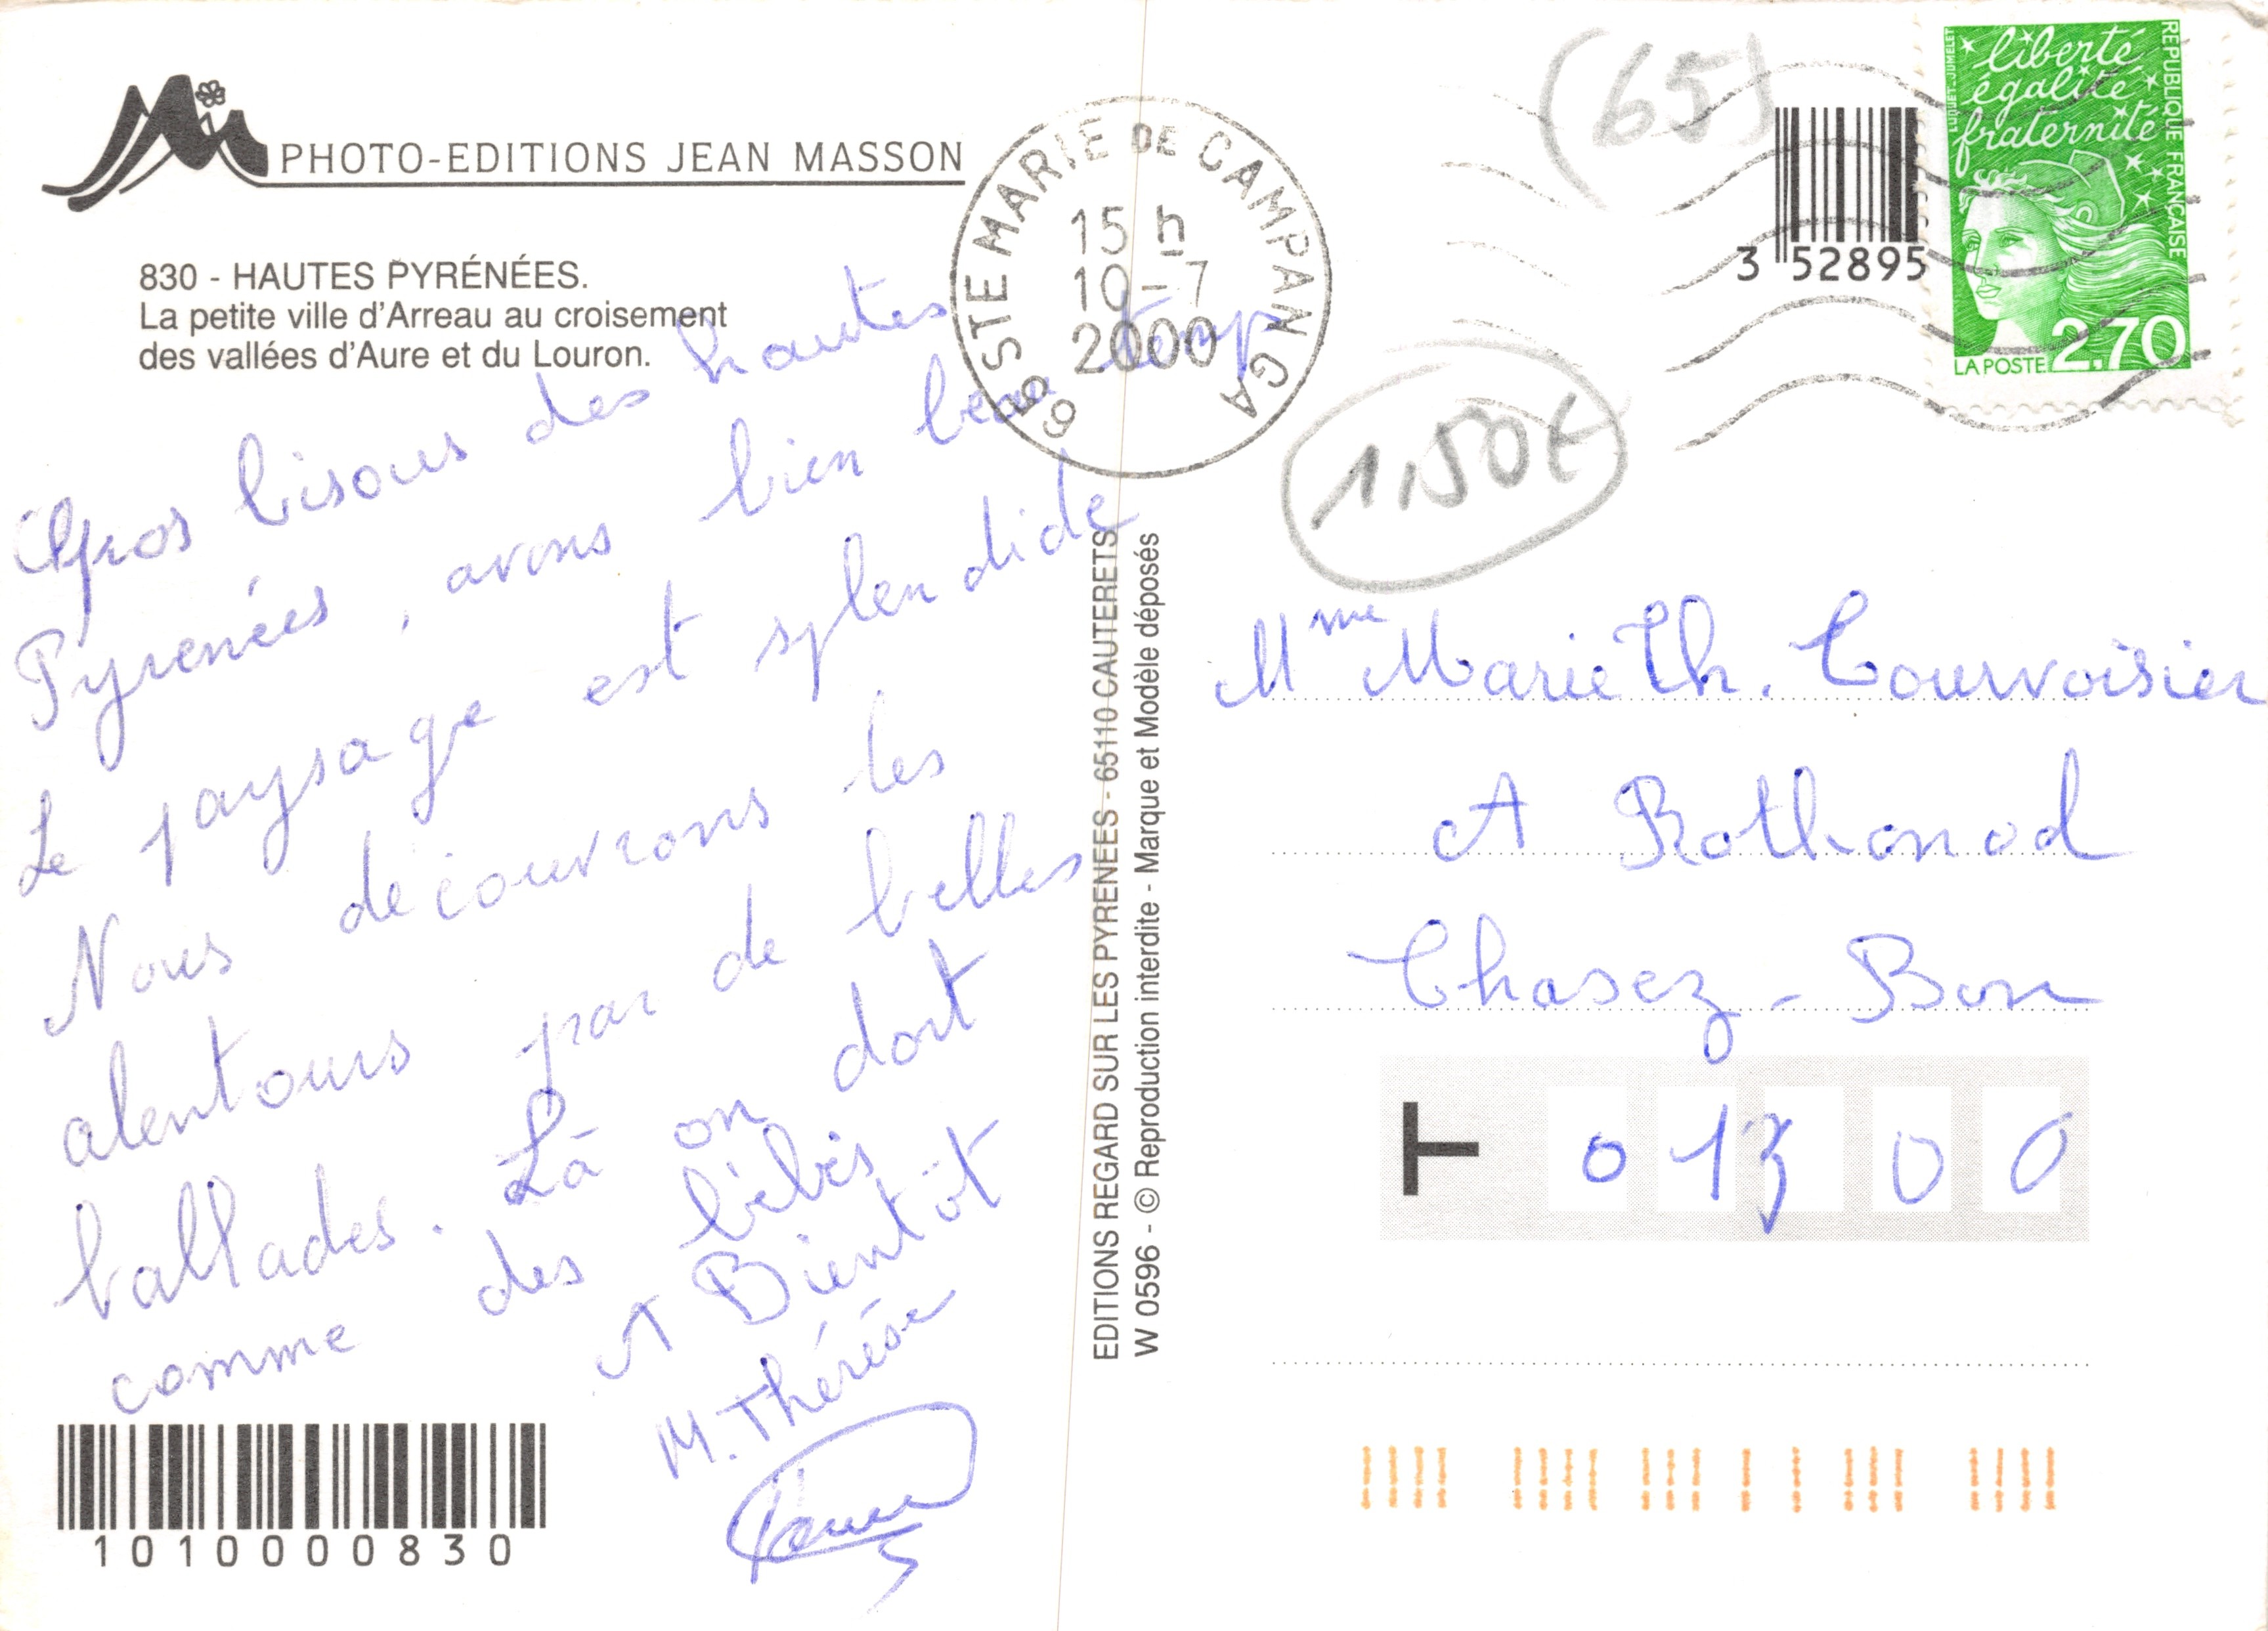 PHOTO-EDITIONS JEAN MASSON
830 - HAUTES PYRÉNÉES.
La petite ville d'Arreau au croisement
des vallées d'Aure et du Louron.
Gros bisous des hautes
Pyrenées, avons bien beau temp
Le paysage est splendide
Nous découvrons les
alentours par de belles
ballades. Là on dort
comme des bébés
A Bientôt
M. Thérèse
1010000830
EDITIONS REGARD SUR LES PYRENEES - 65110 CAUTERETS
W 0596 - © Reproduction interdite - Marque et Modèle déposés
65 STE MARIE DE CAMPAN GA
15 h
10-7
2000
(65)
3 52895
liberté
égalité
fraternité
RÉPUBLIQUE FRANÇAISE
LUQUET-JUMELET
LA POSTE 2,70
1,50€
Mme Marie Th. Courvoisier
A Rothonod
Chasez-Bon
01300